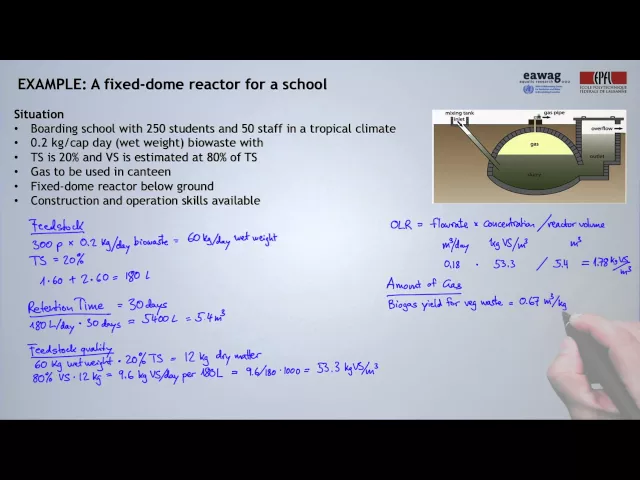 EXAMPLE: A fixed-dome reactor for a school
eawag
aquatic research
EPFL
ÉCOLE POLYTECHNIQUE
FÉDÉRALE DE LAUSANNE
Situation
• Boarding school with 250 students and 50 staff in a tropical climate
• 0.2 kg/cap day (wet weight) biowaste with
• TS is 20% and VS is estimated at 80% of TS
• Gas to be used in canteen
• Fixed-dome reactor below ground
• Construction and operation skills available
mixing tank
inlet
gas pipe
overflow
gas
outlet
slurry
Feedstock
300 p × 0.2 kg/day biowaste = 60 kg/day wet weight
TS = 20%
1·60 + 2·60 = 180 L
Retention Time = 30 days
180 L/day · 30 days = 5400 L = 5.4 m³
Feedstock quality
60 kg wet weight · 20% TS = 12 kg dry matter
80% VS · 12 kg = 9.6 kg VS/day per 180 L = 9.6/180 · 1000 = 53.3 kg VS/m³
OLR = flowrate × concentration / reactor volume
m³/day kg VS/m³ m³
0.18 · 53.3 / 5.4 = 1.78 kg VS/m³
Amount of Gas
Biogas yield for veg waste = 0.67 m³/kg